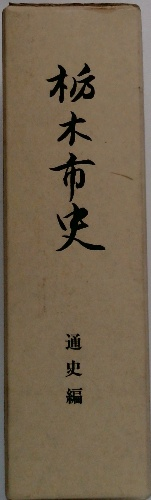 栃木市史
通史編